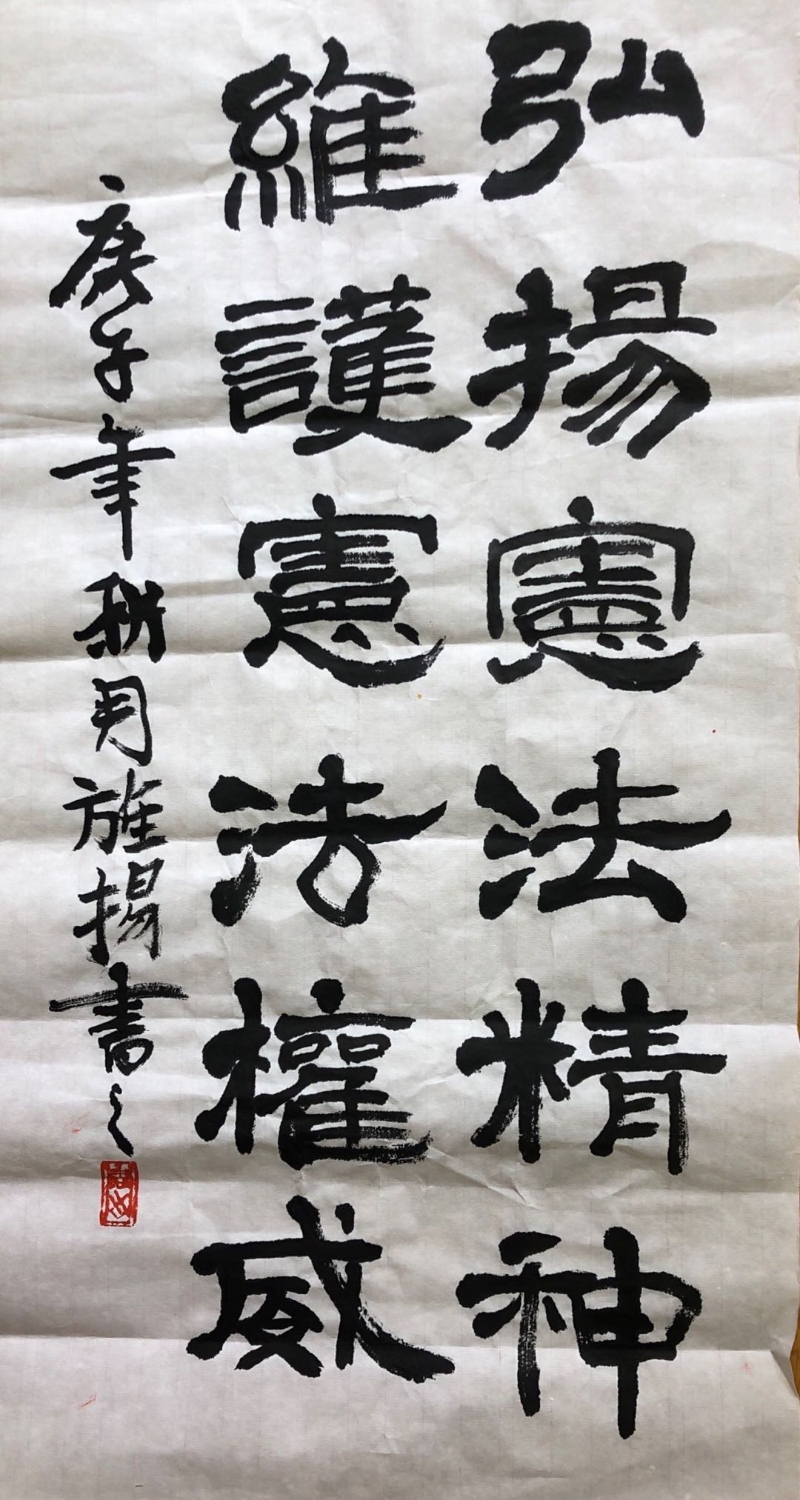 弘揚憲法精神
維護憲法權威
庚子年秋月旌揚書之